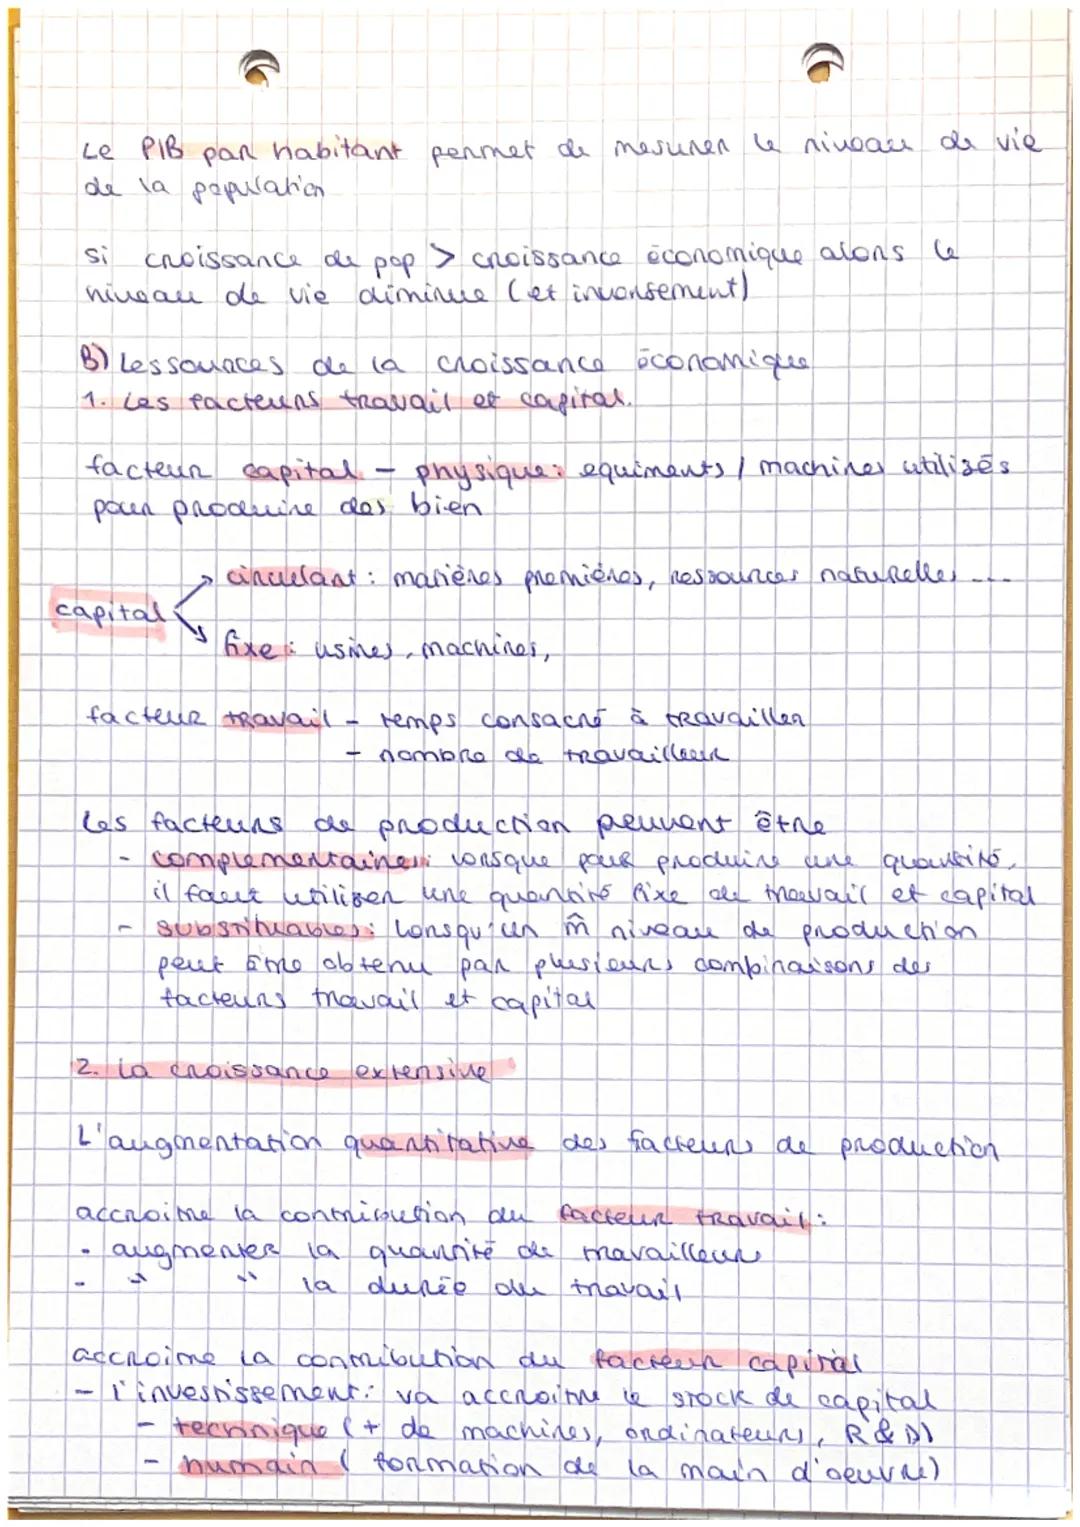 Le PIB par habitant permet de mesurer le niveau de vie
de la population
si croissance de pop > croissance économique alors le
niveau de vie diminue (et inversement)
B) Les sources de la croissance économique
1. Les facteurs travail et capital.
facteur capital - physique: equiments / machines utilisés
pour produire des bien
circulant : matières premières, ressources naturelles ...
capital
fixe : usines, machines,
facteur travail - temps consacré à travailler
- nombre de travailleur
Les facteurs de production peuvent être
- complémentaires: lorsque pour produire une quantité,
il faut utiliser une quantité fixe de travail et capital
- substituables: lorsqu'un m̂ niveau de production
peut être obtenu par plusieurs combinaisons des
facteurs travail et capital
2. La croissance extensive
L'augmentation quantitative des facteurs de production
accroitre la contribution du facteur travail :
- augmenter la quantité de travailleurs
- " " la durée du travail
accroitre la contribution du facteur capital
- l'investissement: va accroitre le stock de capital
- technique (+ de machines, ordinateurs, R & D)
- humain (formation de la main d'oeuvre)